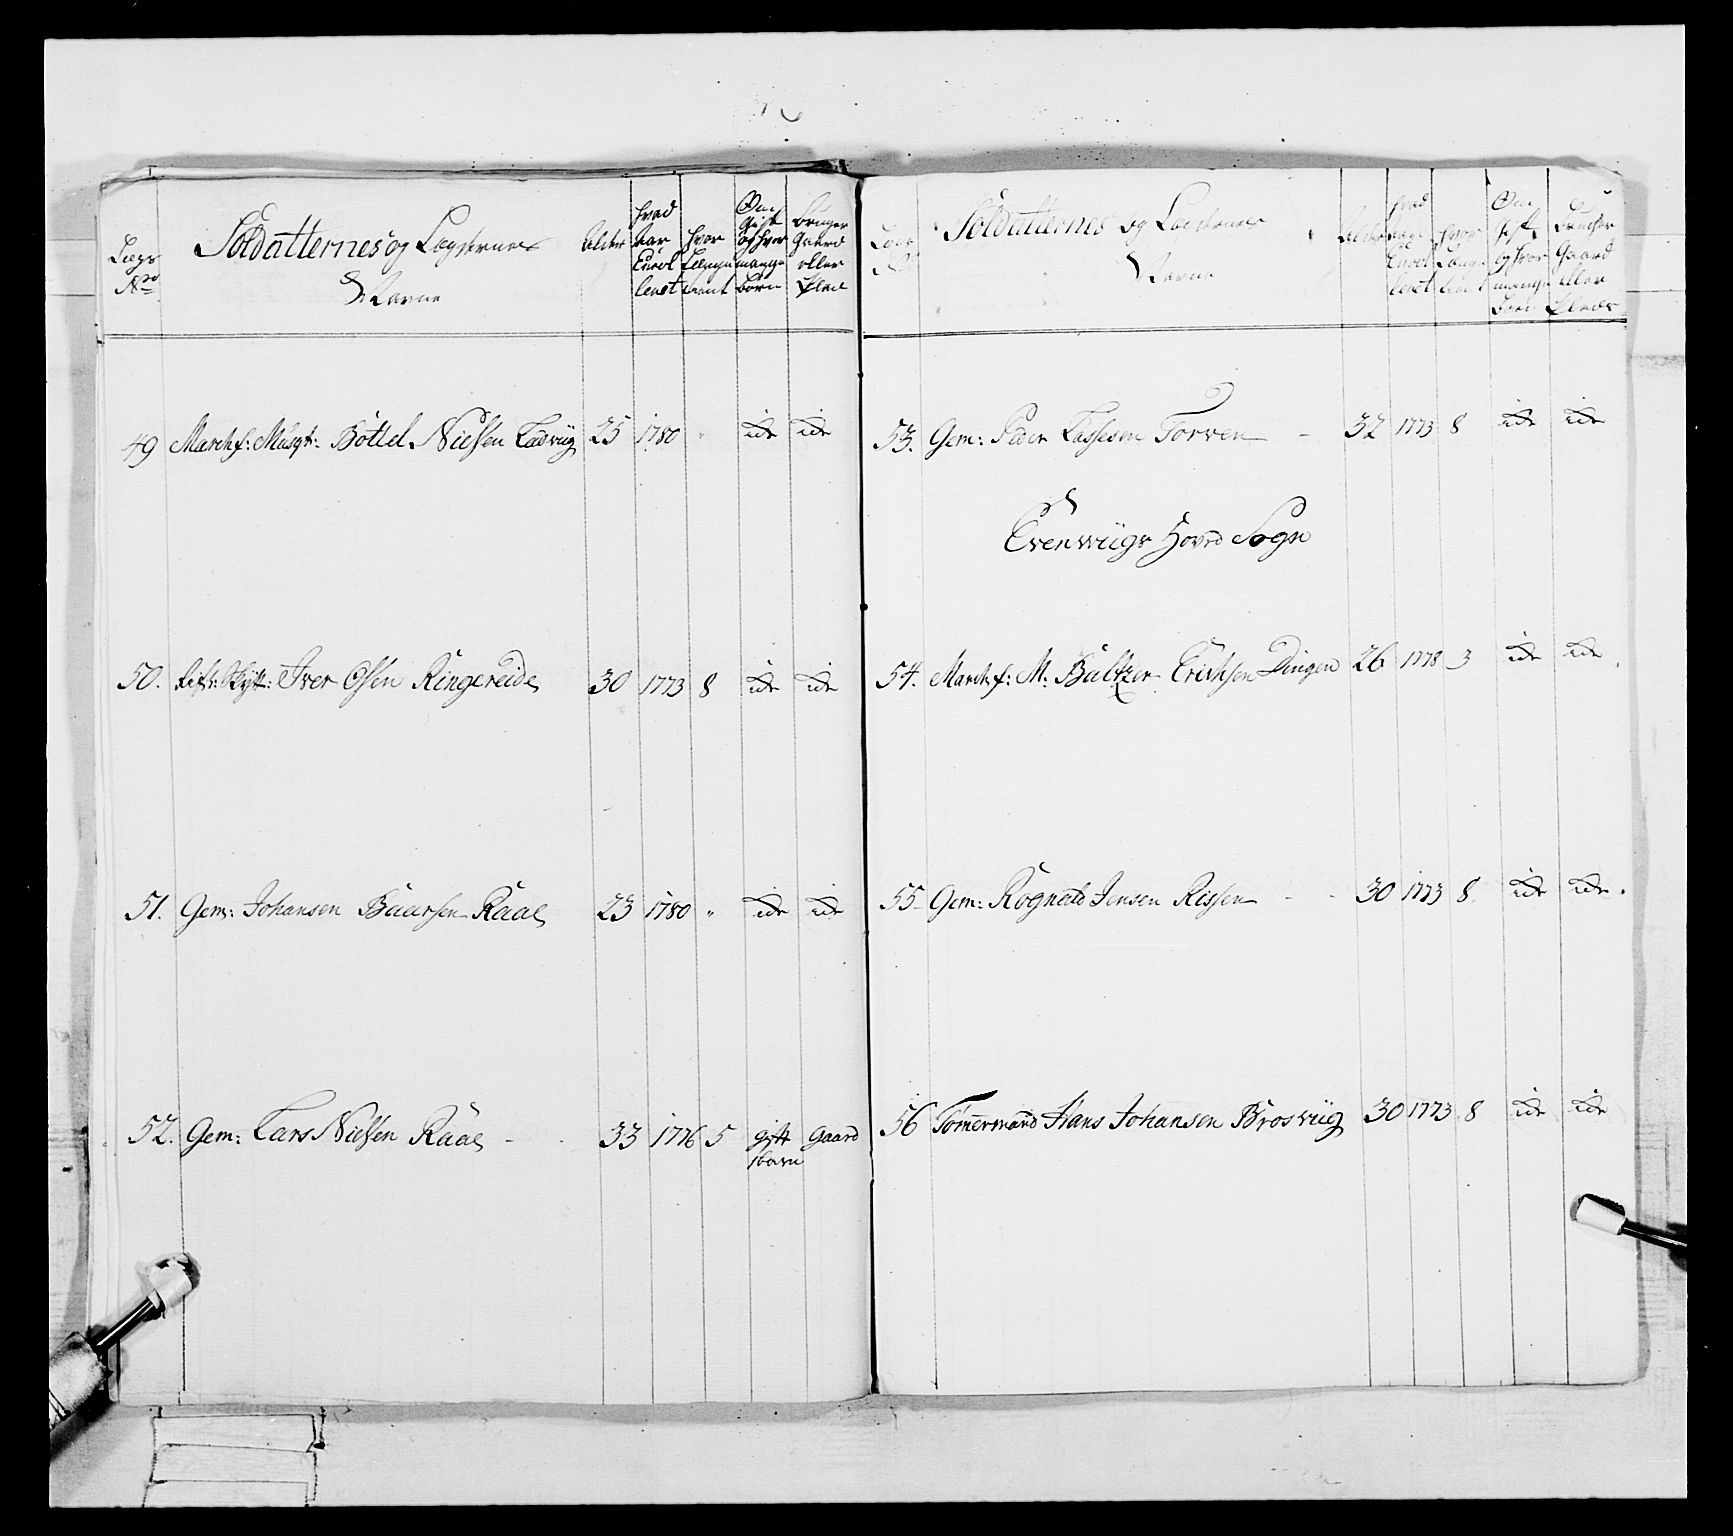 Lægs Nro | Soldatternes og Lægdernes Navne | Alder | hvad aar Enrolleret | hvor Længe tient | Om gift og hvor mange Børn | bruger Gaard eller Plad
49 March f: Musqt: Bottel Nielsen Ladviig 25 1780 " ide ide
50. Rifl: Skytt: Iver Olsen Ringereide 30 1773 8 ide ide
51. Gem: Johansen Baarsen Raae 23 1780 " ide ide
52. Gem: Lars Nielsen Raae - - 33 1776 5 gift Gaard
1 barn
Lægs No | Soldatternes og Lægdernes Navne | Alder | hvad aar Enrolleret | hvor Længe | Om gift og hvor mange Børn | Bruger Gaard eller Plads
53. Gem: Peder Lassesen Torven - 32 1773 8 ide ide
Evenviigs Hoved Sogn
54. March f: M: Baltzer Erichsen Dingen 26 1778 3 ide ide
55 Gem: Rognald Jensen Rissen - - 30 1773 8 ide ide.
56 Tömermand Hans Johansen Brosviig 30 1773 8 ide ide